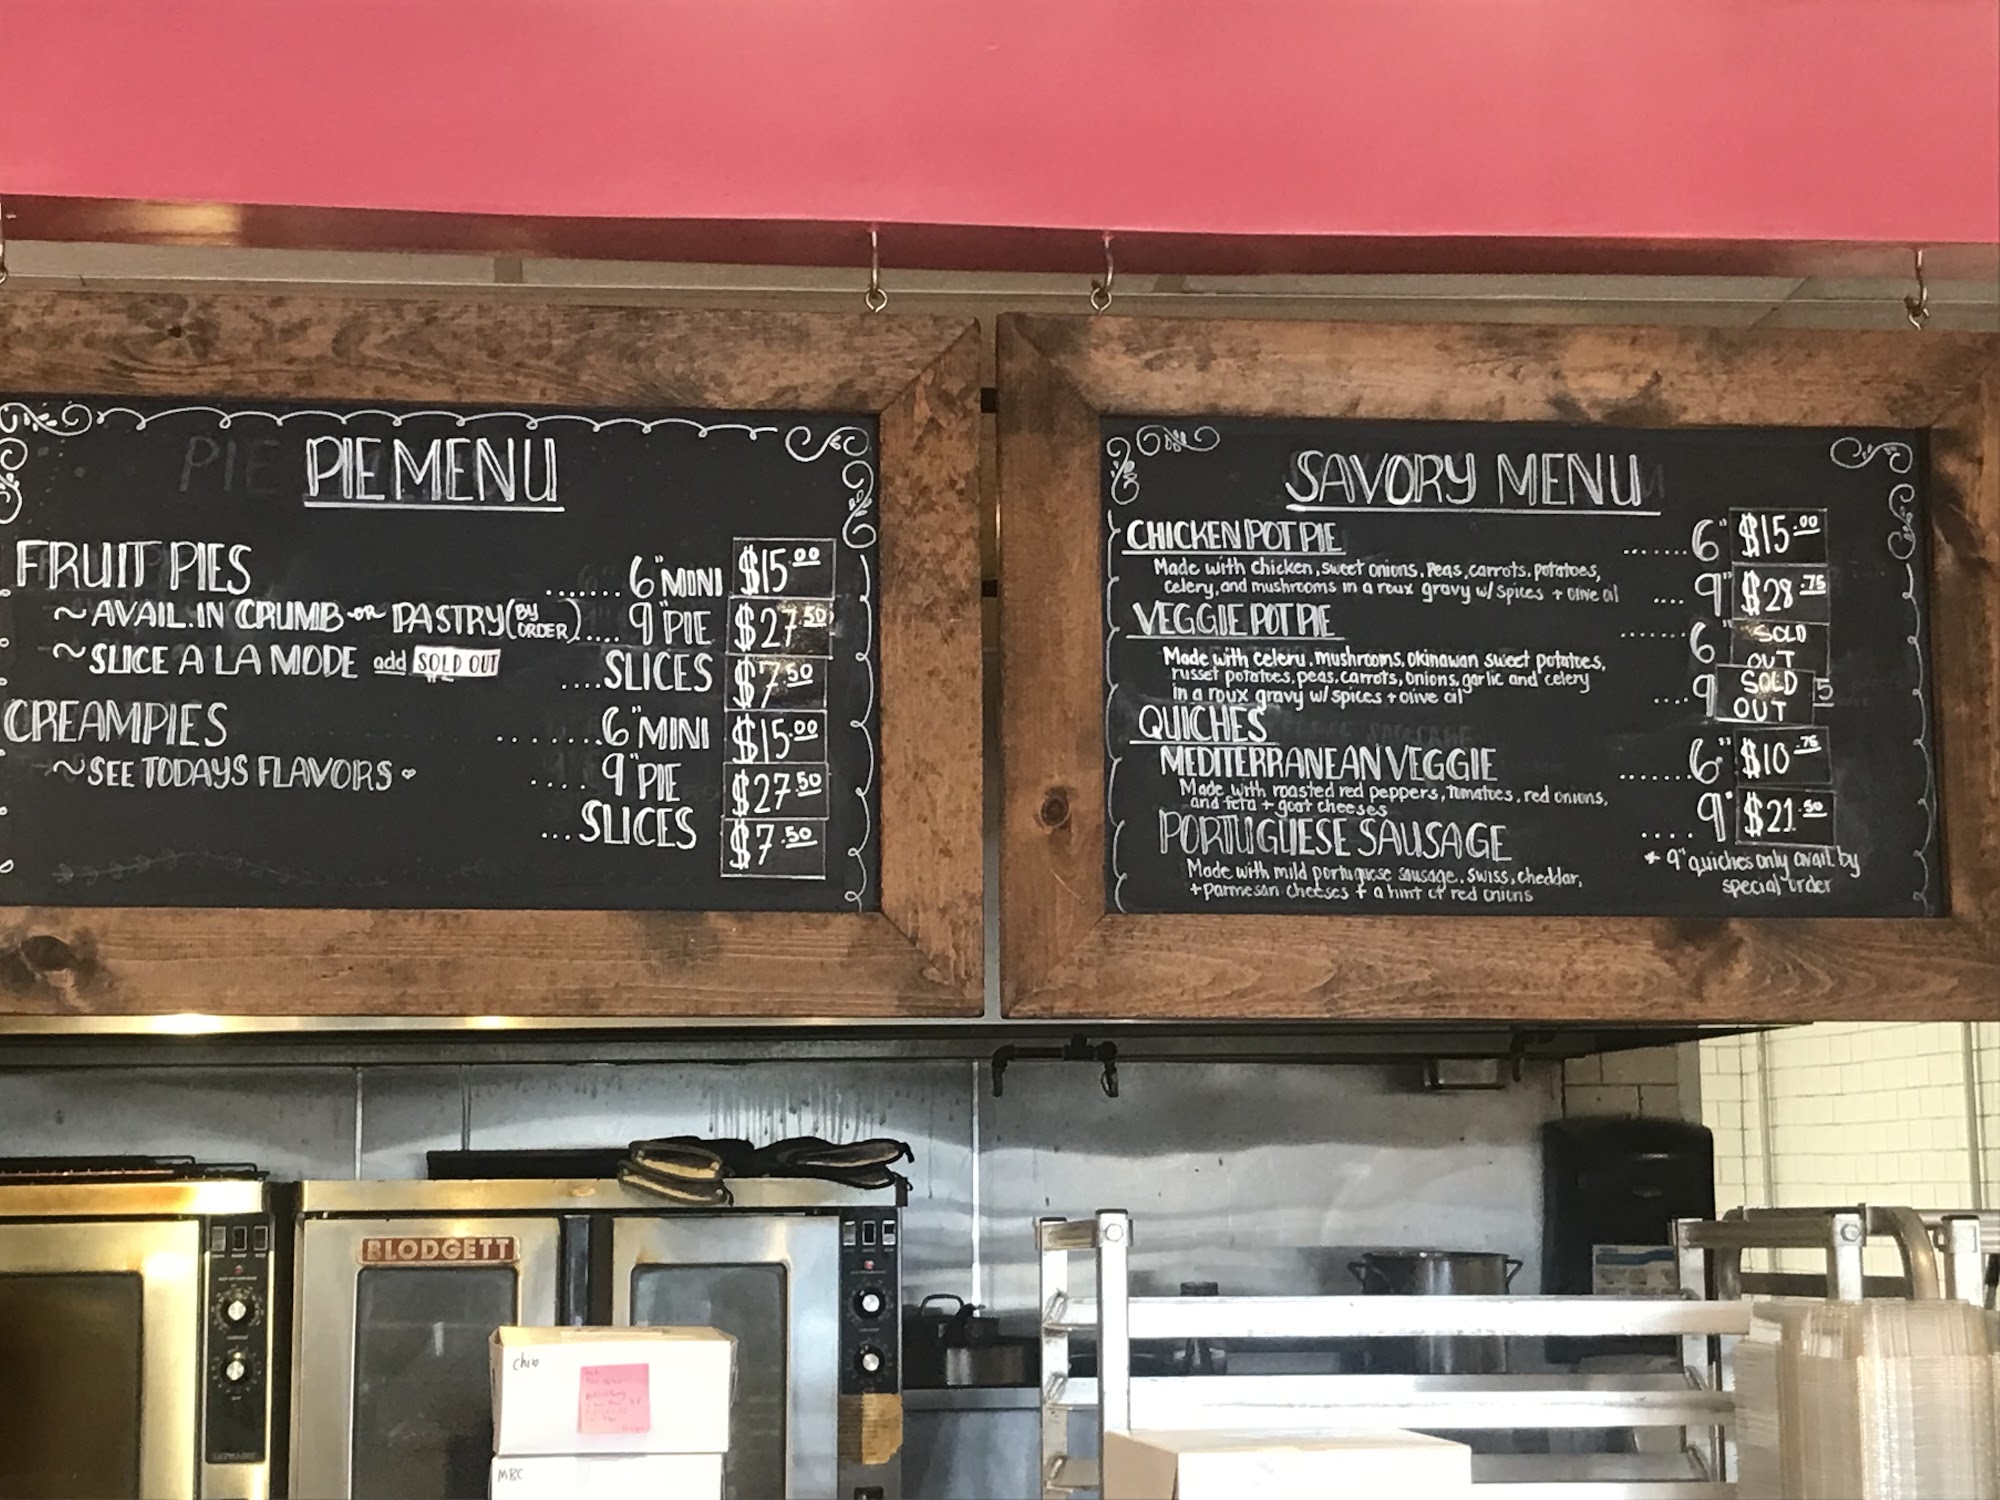 PIE MENU
FRUIT PIES
.......6" MINI $15.00
~AVAIL. IN CRUMB or PASTRY (BY ORDER)..... 9" PIE $27.50
~SLICE A LA MODE add SOLD OUT
....SLICES $7.50
CREAM PIES
.......6" MINI $15.00
~SEE TODAYS FLAVORS
....9" PIE $27.50
...SLICES $7.50
SAVORY MENU
CHICKEN POT PIE .......6" $15.00
Made with chicken, sweet onions, peas, carrots, potatoes,
celery, and mushrooms in a roux gravy w/ spices + olive oil ....9" $28.75
VEGGIE POT PIE .......6" SOLD OUT
Made with celeru, mushrooms, okinawan sweet potatoes,
russet potatoes, peas, carrots, onions, garlic and celery
in a roux gravy w/ spices + olive oil ....9 SOLD OUT 5
QUICHES
MEDITERRANEAN VEGGIE .......6" $10.75
Made with roasted red peppers, tomatoes, red onions,
and feta + goat cheeses
PORTUGUESE SAUSAGE ....9" $21.50
Made with mild portuguese sausage, swiss, cheddar,
+ parmesan cheeses + a hint of red onions
* 9" quiches only avail. by
special order
BLODGETT
MBC